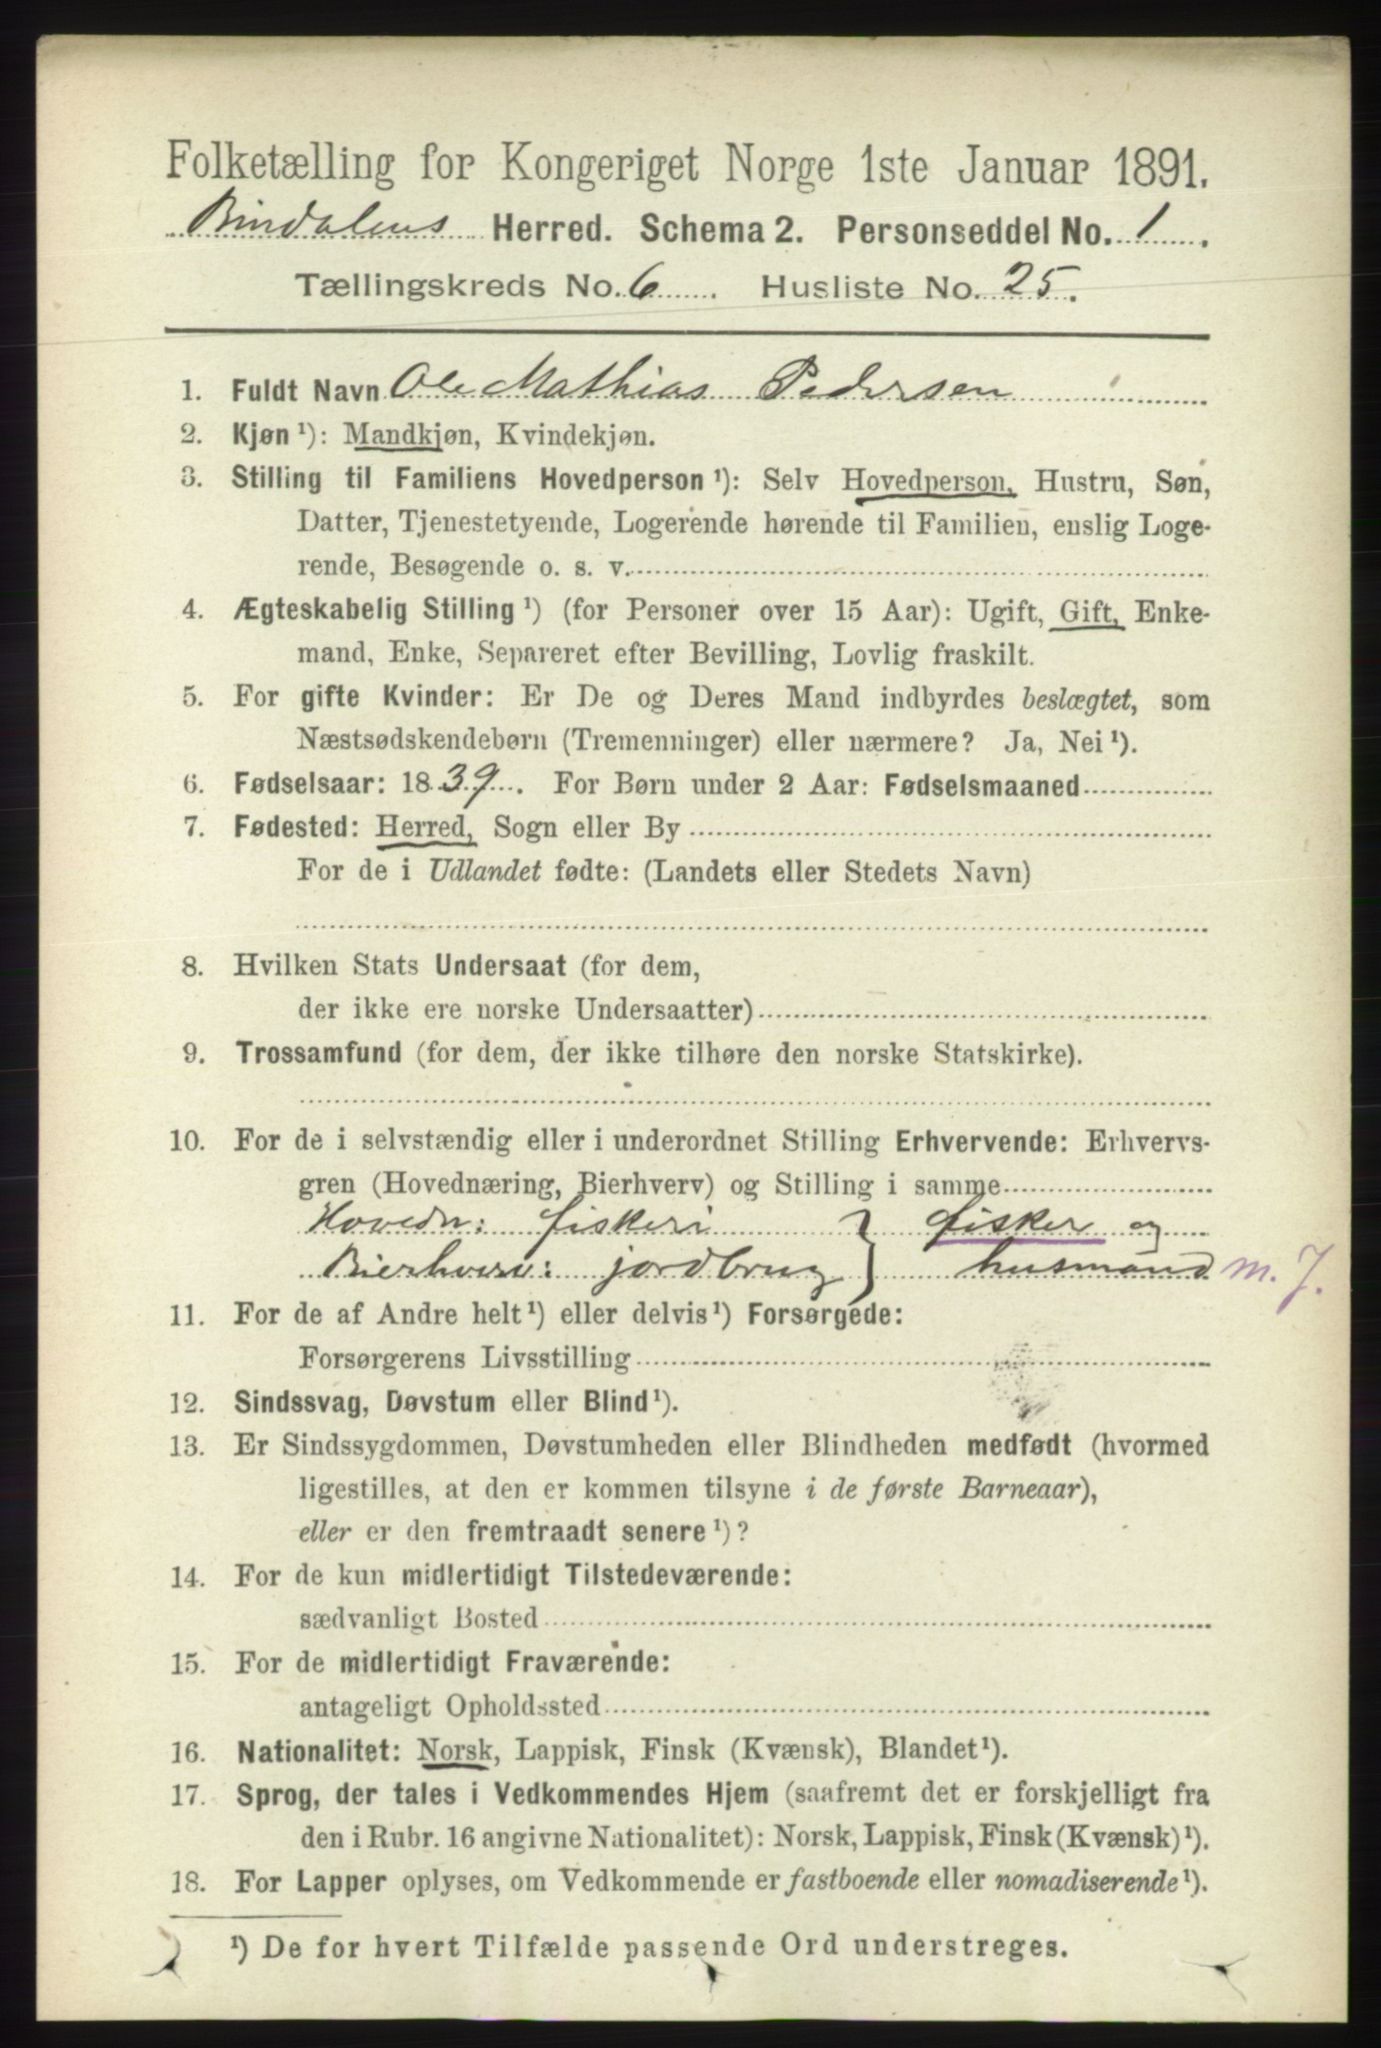 Folketælling for Kongeriget Norge 1ste Januar 1891.
Bindalens Herred. Schema 2. Personseddel No. 1.
Tællingskreds No. 6. Husliste No. 25.
1. Fuldt Navn Ole Mathias Pedersen
2. Kjøn ¹): Mandkjøn, Kvindekjøn.
3. Stilling til Familiens Hovedperson ¹): Selv Hovedperson, Hustru, Søn,
Datter, Tjenestetyende, Logerende hørende til Familien, enslig Loge-
rende, Besøgende o. s. v.
4. Ægteskabelig Stilling ¹) (for Personer over 15 Aar): Ugift, Gift, Enke-
mand, Enke, Separeret efter Bevilling, Lovlig fraskilt.
5. For gifte Kvinder: Er De og Deres Mand indbyrdes beslægtet, som
Næstsødskendebørn (Tremenninger) eller nærmere? Ja, Nei ¹).
6. Fødselsaar: 1839. For Børn under 2 Aar: Fødselsmaaned
7. Fødested: Herred, Sogn eller By
For de i Udlandet fødte: (Landets eller Stedets Navn)
8. Hvilken Stats Undersaat (for dem,
der ikke ere norske Undersaatter)
9. Trossamfund (for dem, der ikke tilhøre den norske Statskirke).
10. For de i selvstændig eller i underordnet Stilling Erhvervende: Erhvervs-
gren (Hovednæring, Bierhverv) og Stilling i samme
Hovedn: fiskeri } fisker og
Bierhverv: jordbrug } husmand m. J.
11. For de af Andre helt ¹) eller delvis ¹) Forsørgede:
Forsørgerens Livsstilling
12. Sindssvag, Døvstum eller Blind ¹).
13. Er Sindssygdommen, Døvstumheden eller Blindheden medfødt (hvormed
ligestilles, at den er kommen tilsyne i de første Barneaar),
eller er den fremtraadt senere ¹)?
14. For de kun midlertidigt Tilstedeværende:
sædvanligt Bosted
15. For de midlertidigt Fraværende:
antageligt Opholdssted
16. Nationalitet: Norsk, Lappisk, Finsk (Kvænsk), Blandet ¹).
17. Sprog, der tales i Vedkommendes Hjem (saafremt det er forskjelligt fra
den i Rubr. 16 angivne Nationalitet): Norsk, Lappisk, Finsk (Kvænsk) ¹).
18. For Lapper oplyses, om Vedkommende er fastboende eller nomadiserende ¹).
¹) De for hvert Tilfælde passende Ord understreges.